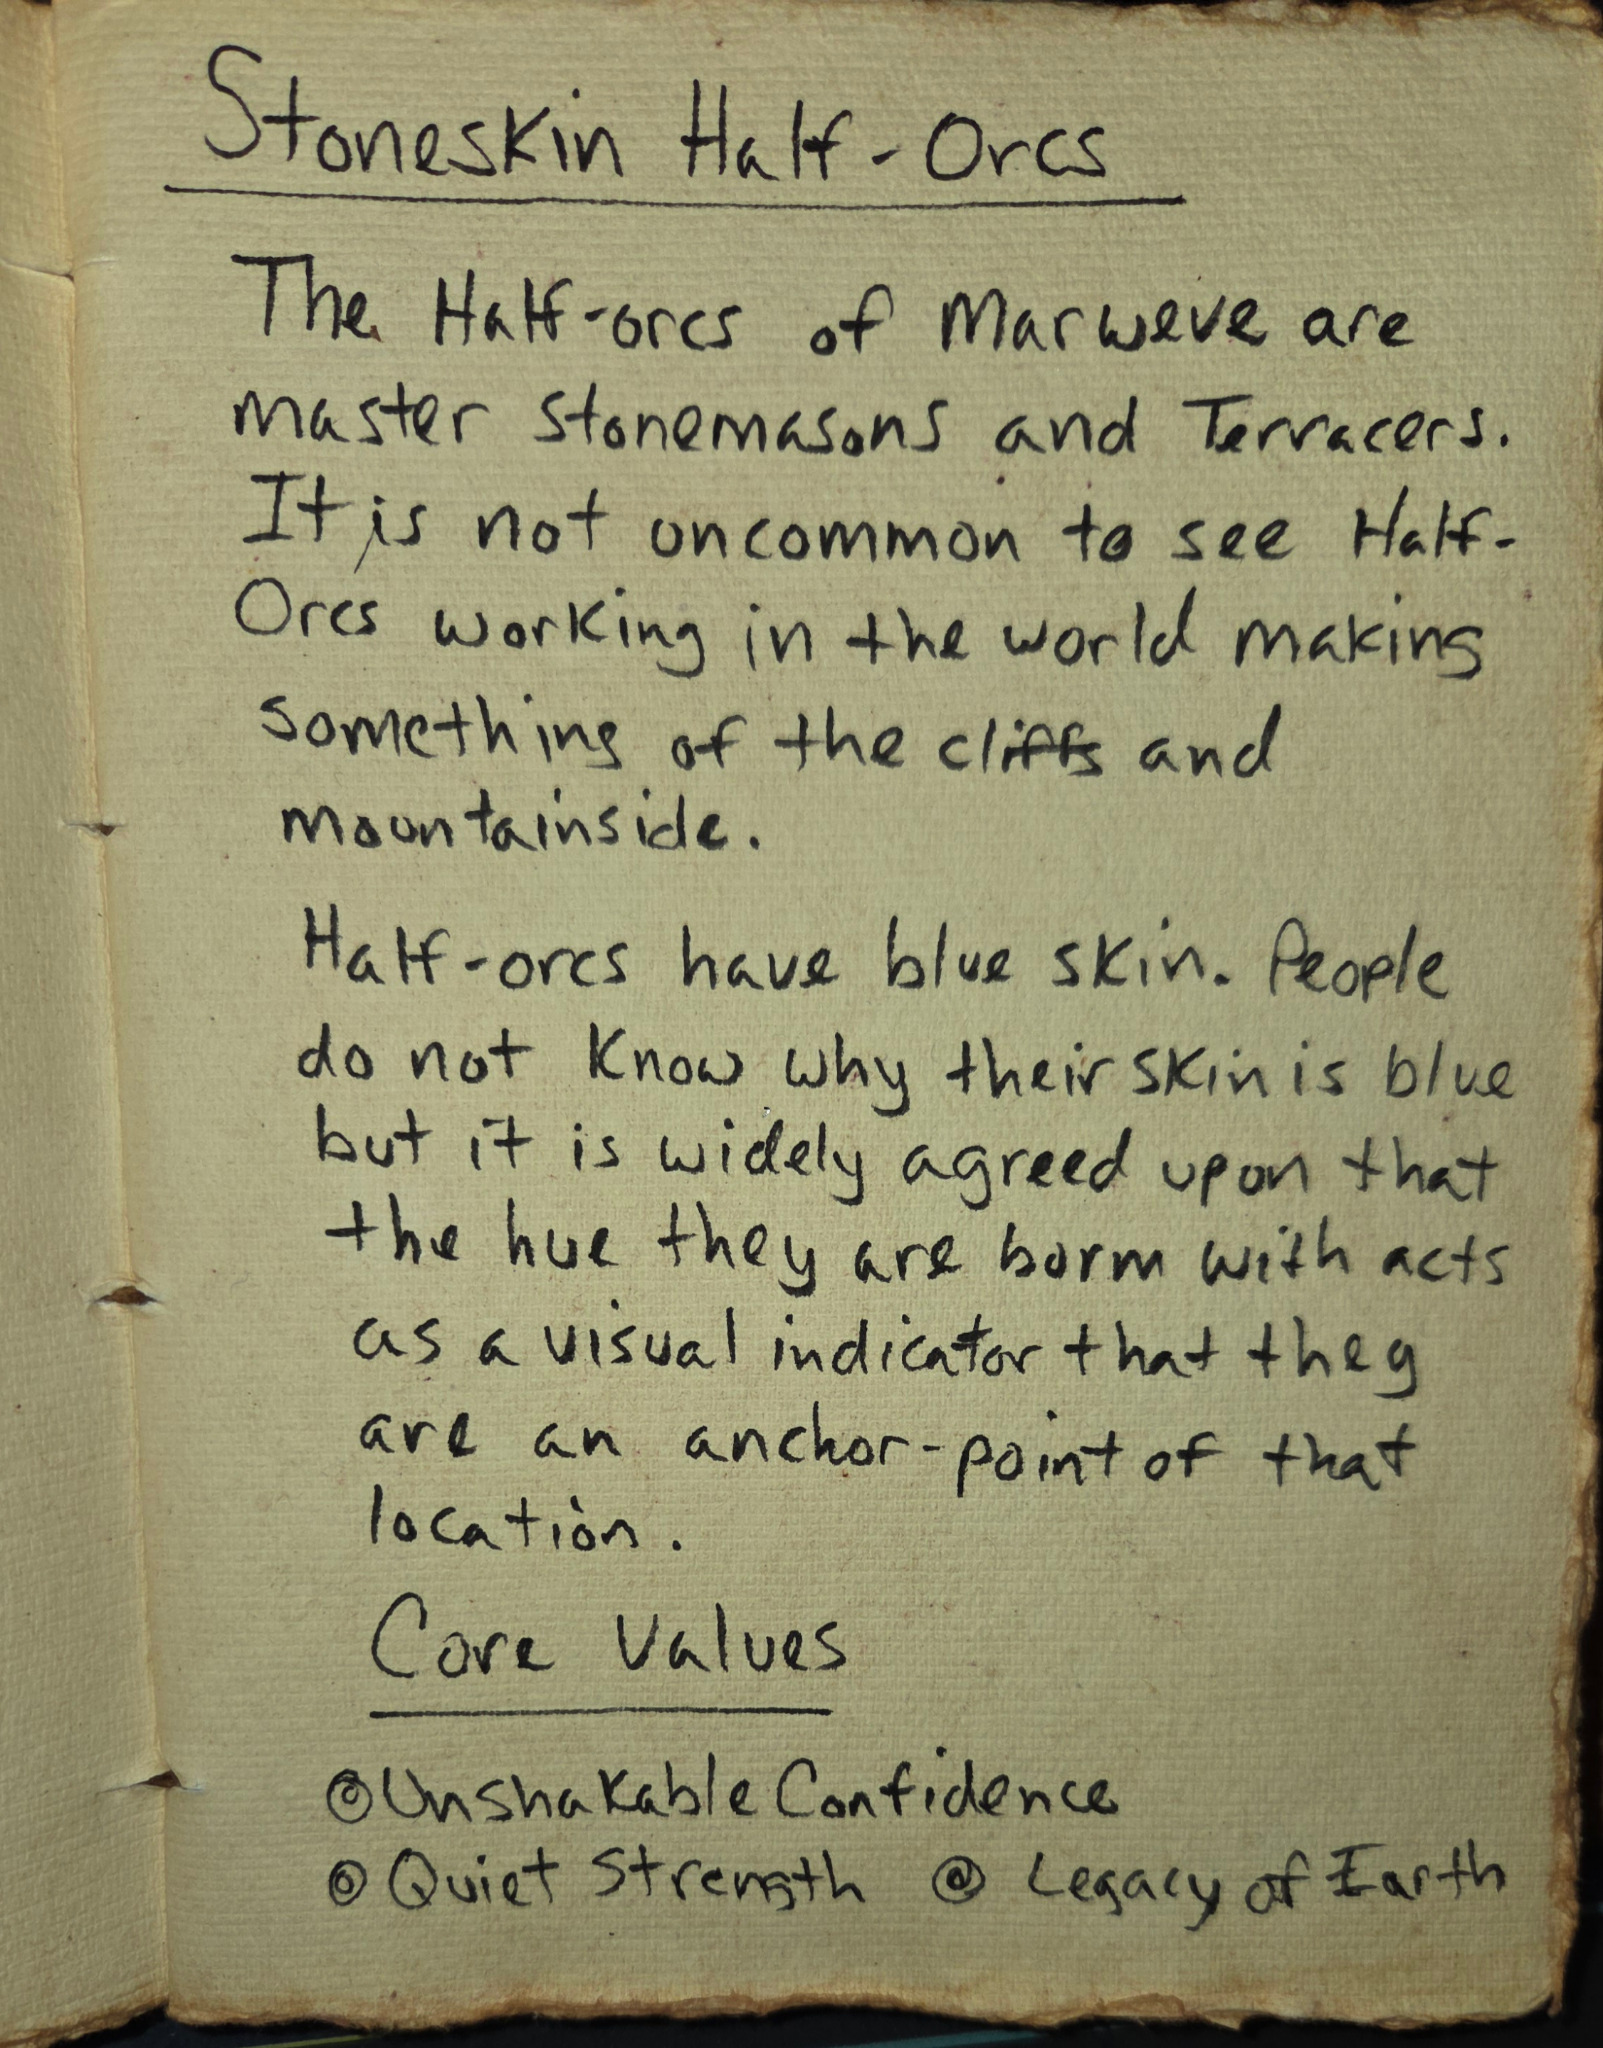 Stoneskin Half-Orcs
The Half-orcs of Marweve are
master stonemasons and Terracers.
It is not uncommon to see Half-
Orcs working in the world making
something of the cliffs and
mountainside.
Half-orcs have blue skin. People
do not know why their skin is blue
but it is widely agreed upon that
the hue they are born with acts
as a visual indicator that they
are an anchor-point of that
location.
Core Values
Unshakable Confidence
Quiet Strength Legacy of Earth